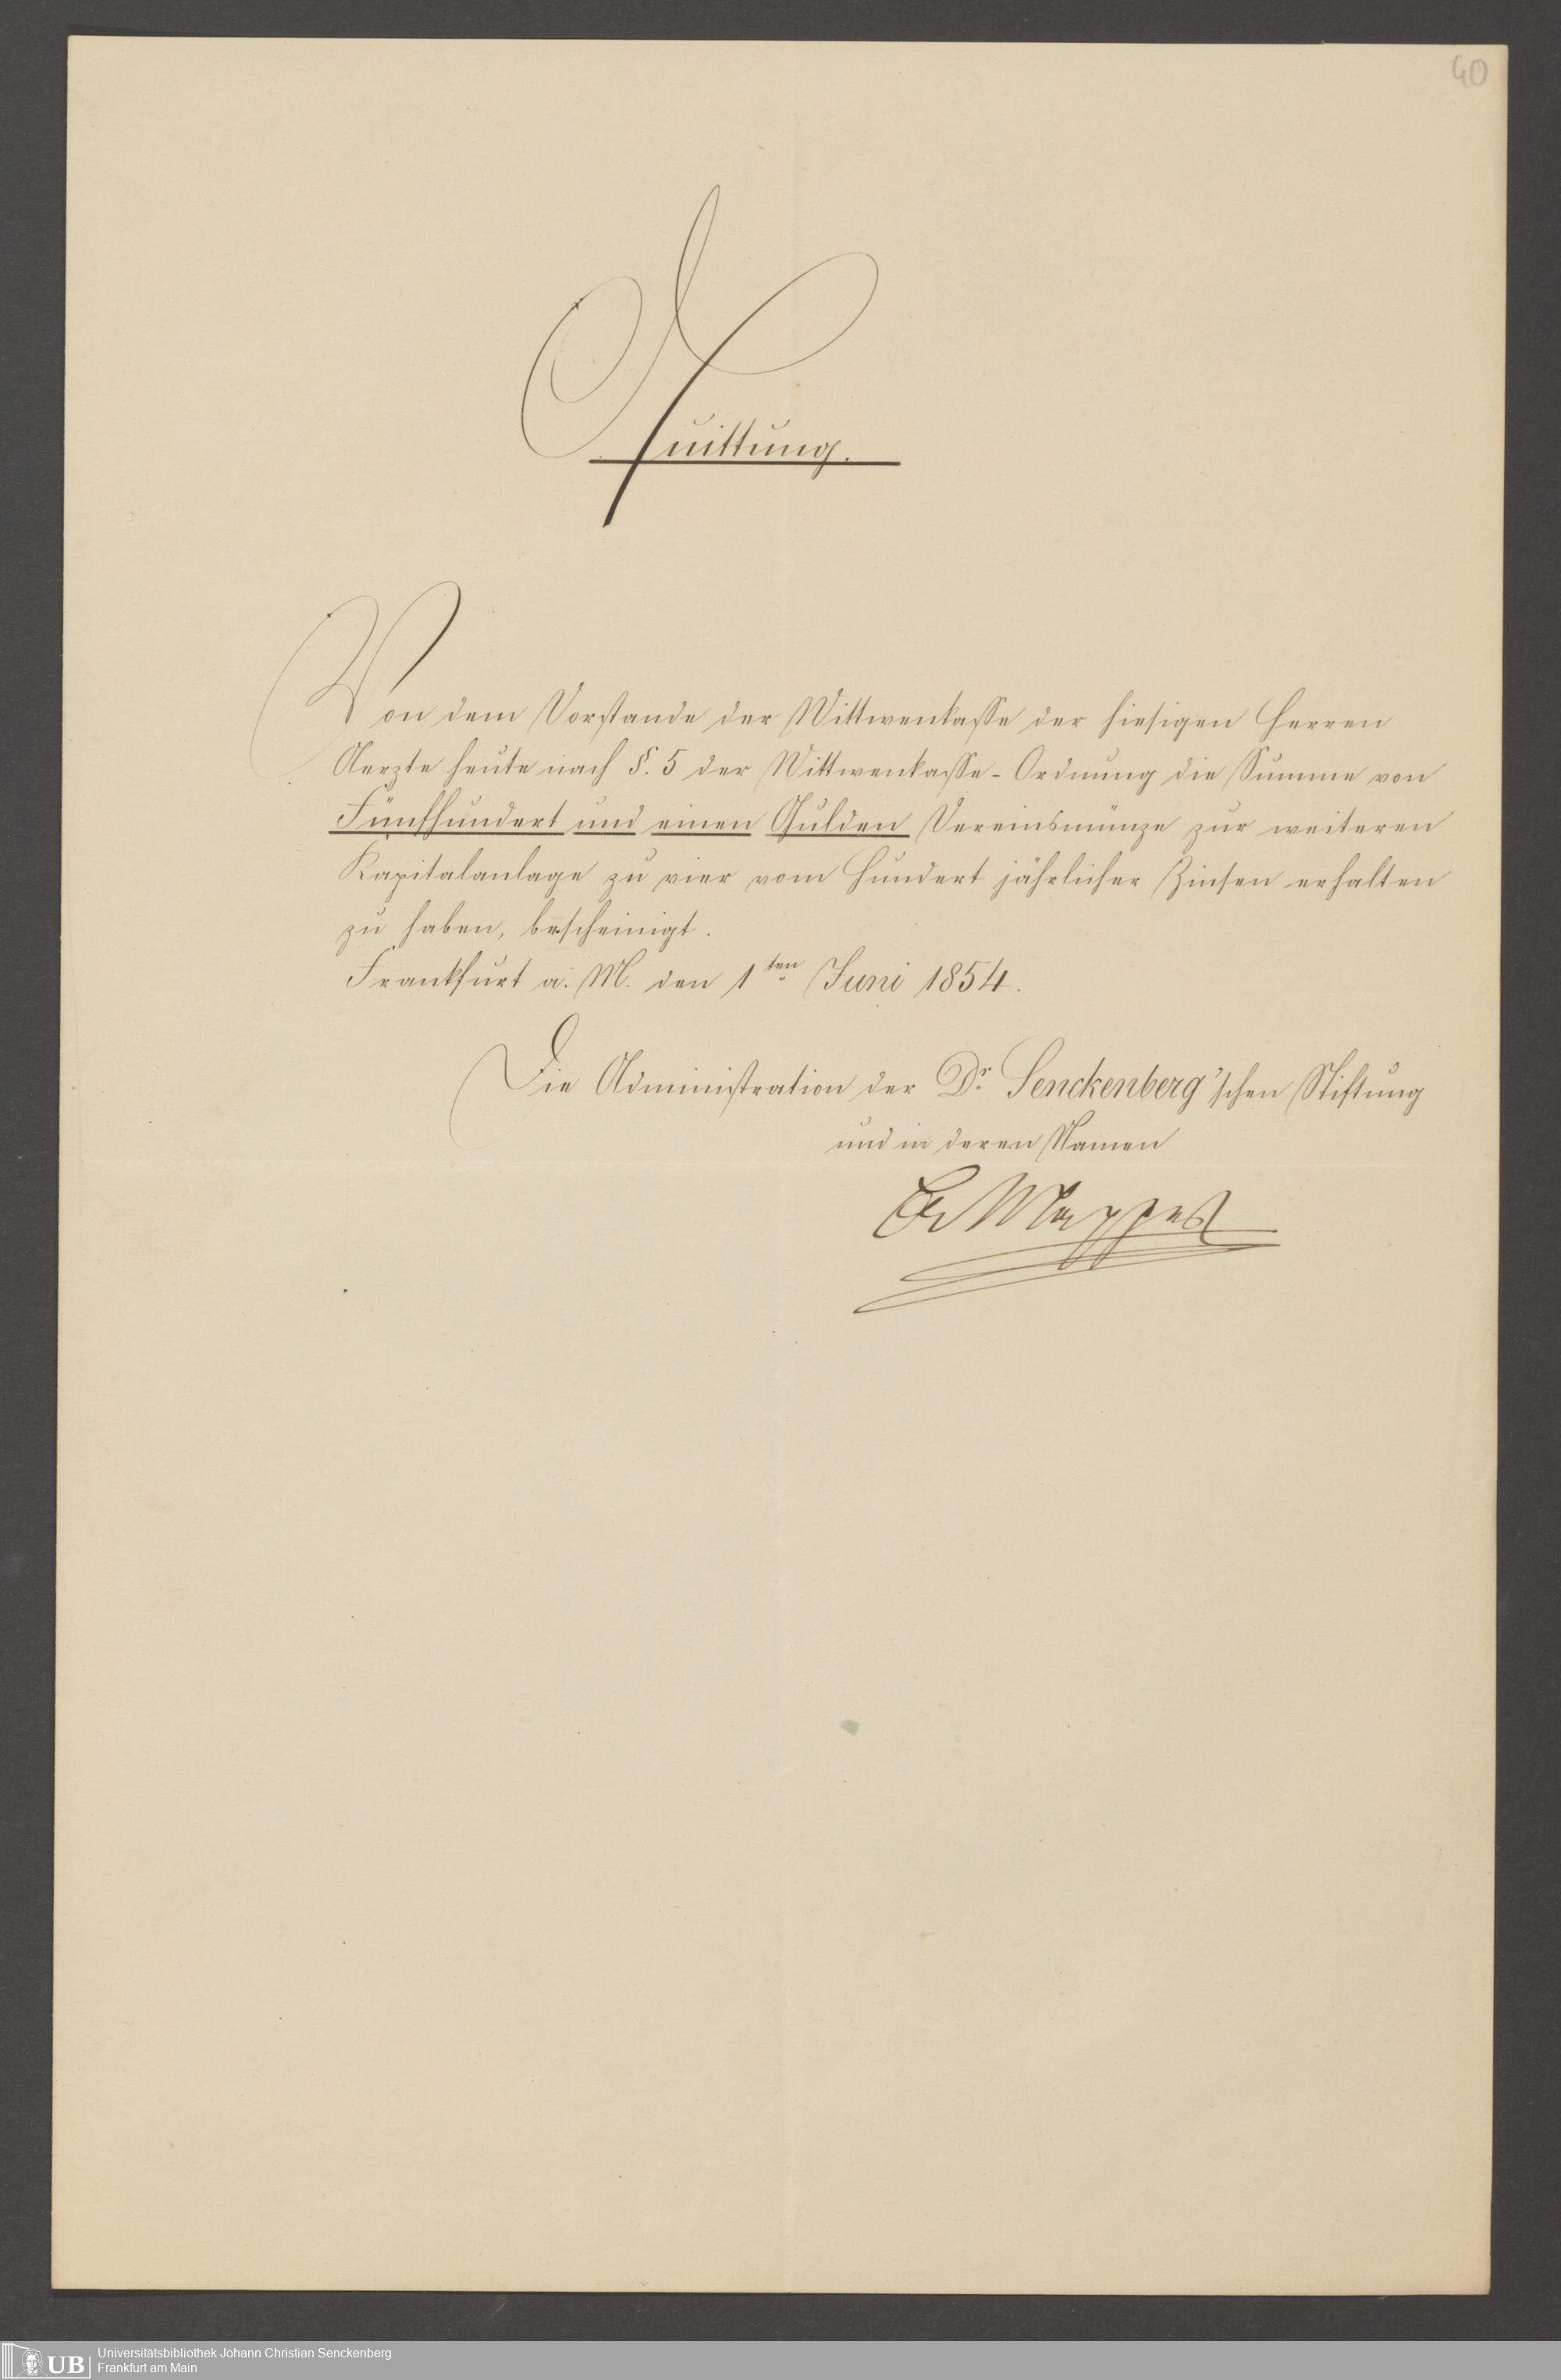 40
Quittung.
Von dem Vorstande der Wittwenkasse der hiesigen Herren
Aerzte heute nach §. 5 der Wittwenkasse-Ordnung die Summe von
Fünfhundert und einen Gulden Vereinsmünze zur weiteren
Kapitalanlage zu vier vom Hundert jährlicher Zinsen erhalten
zu haben, bescheinigt.
Frankfurt a. M. den 1ten Juni 1854.
Die Administration der Dr. Senckenberg'schen Stiftung
und in deren Namen
Dr Mappes
UB
Universitätsbibliothek Johann Christian Senckenberg
Frankfurt am Main